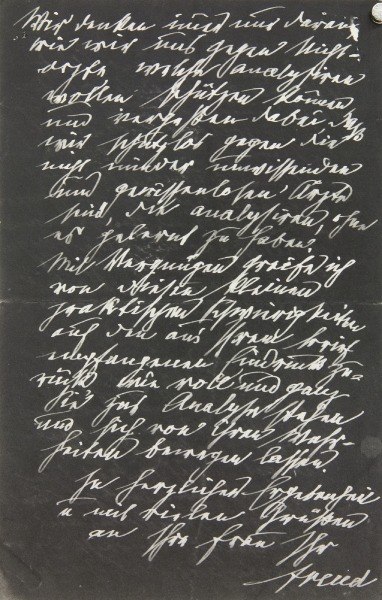 Wir denken immer nur daran
wie wir uns gegen Nicht-
ärzte welche analysiren
wollen schützen können
und vergessen dabei daß
wir schutzlos gegen die
nicht minder unwissenden
und gewissenlosen Ärzte
sind, die analysiren, ohne
es gelernt zu haben.
Mit Vergnügen greife ich
von diesen kleinen
praktischen Schwierigkeiten
auf den aus Ihrem Brief
empfangenen Eindruck zu-
rück wie voll und ganz
Sie zur Analyse stehen
und sich von ihren Wahr-
heiten bewegen lassen.
In herzlicher Ergebenheit
u mit vielen Grüßen
an Ihre Frau Ihr
Freud